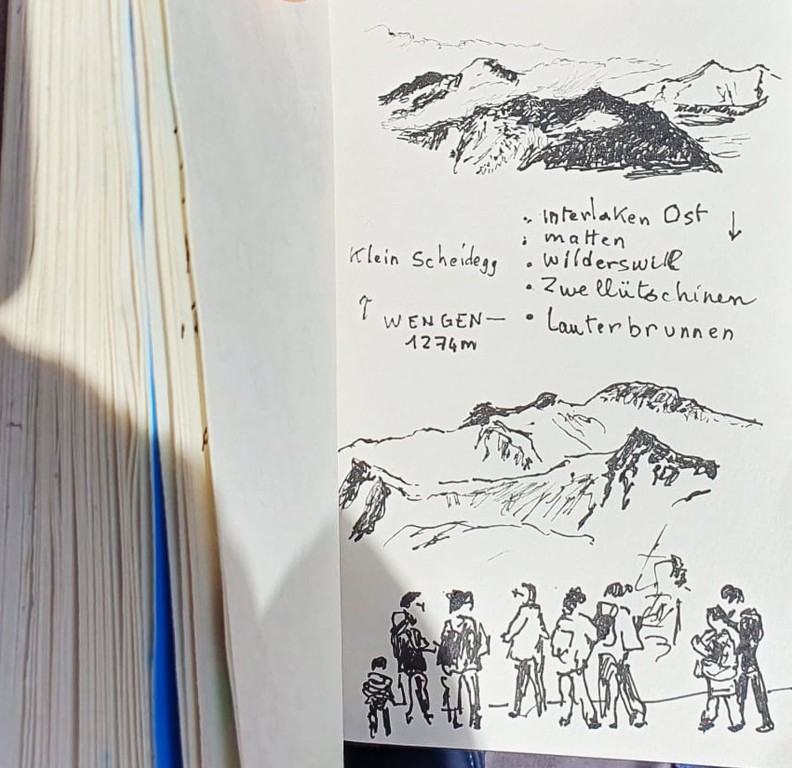 Interlaken Ost ↓
matten
Wilderswill
Zwellütschinen
Lauterbrunnen
Klein Scheidegg
↑ WENGEN —
1274m